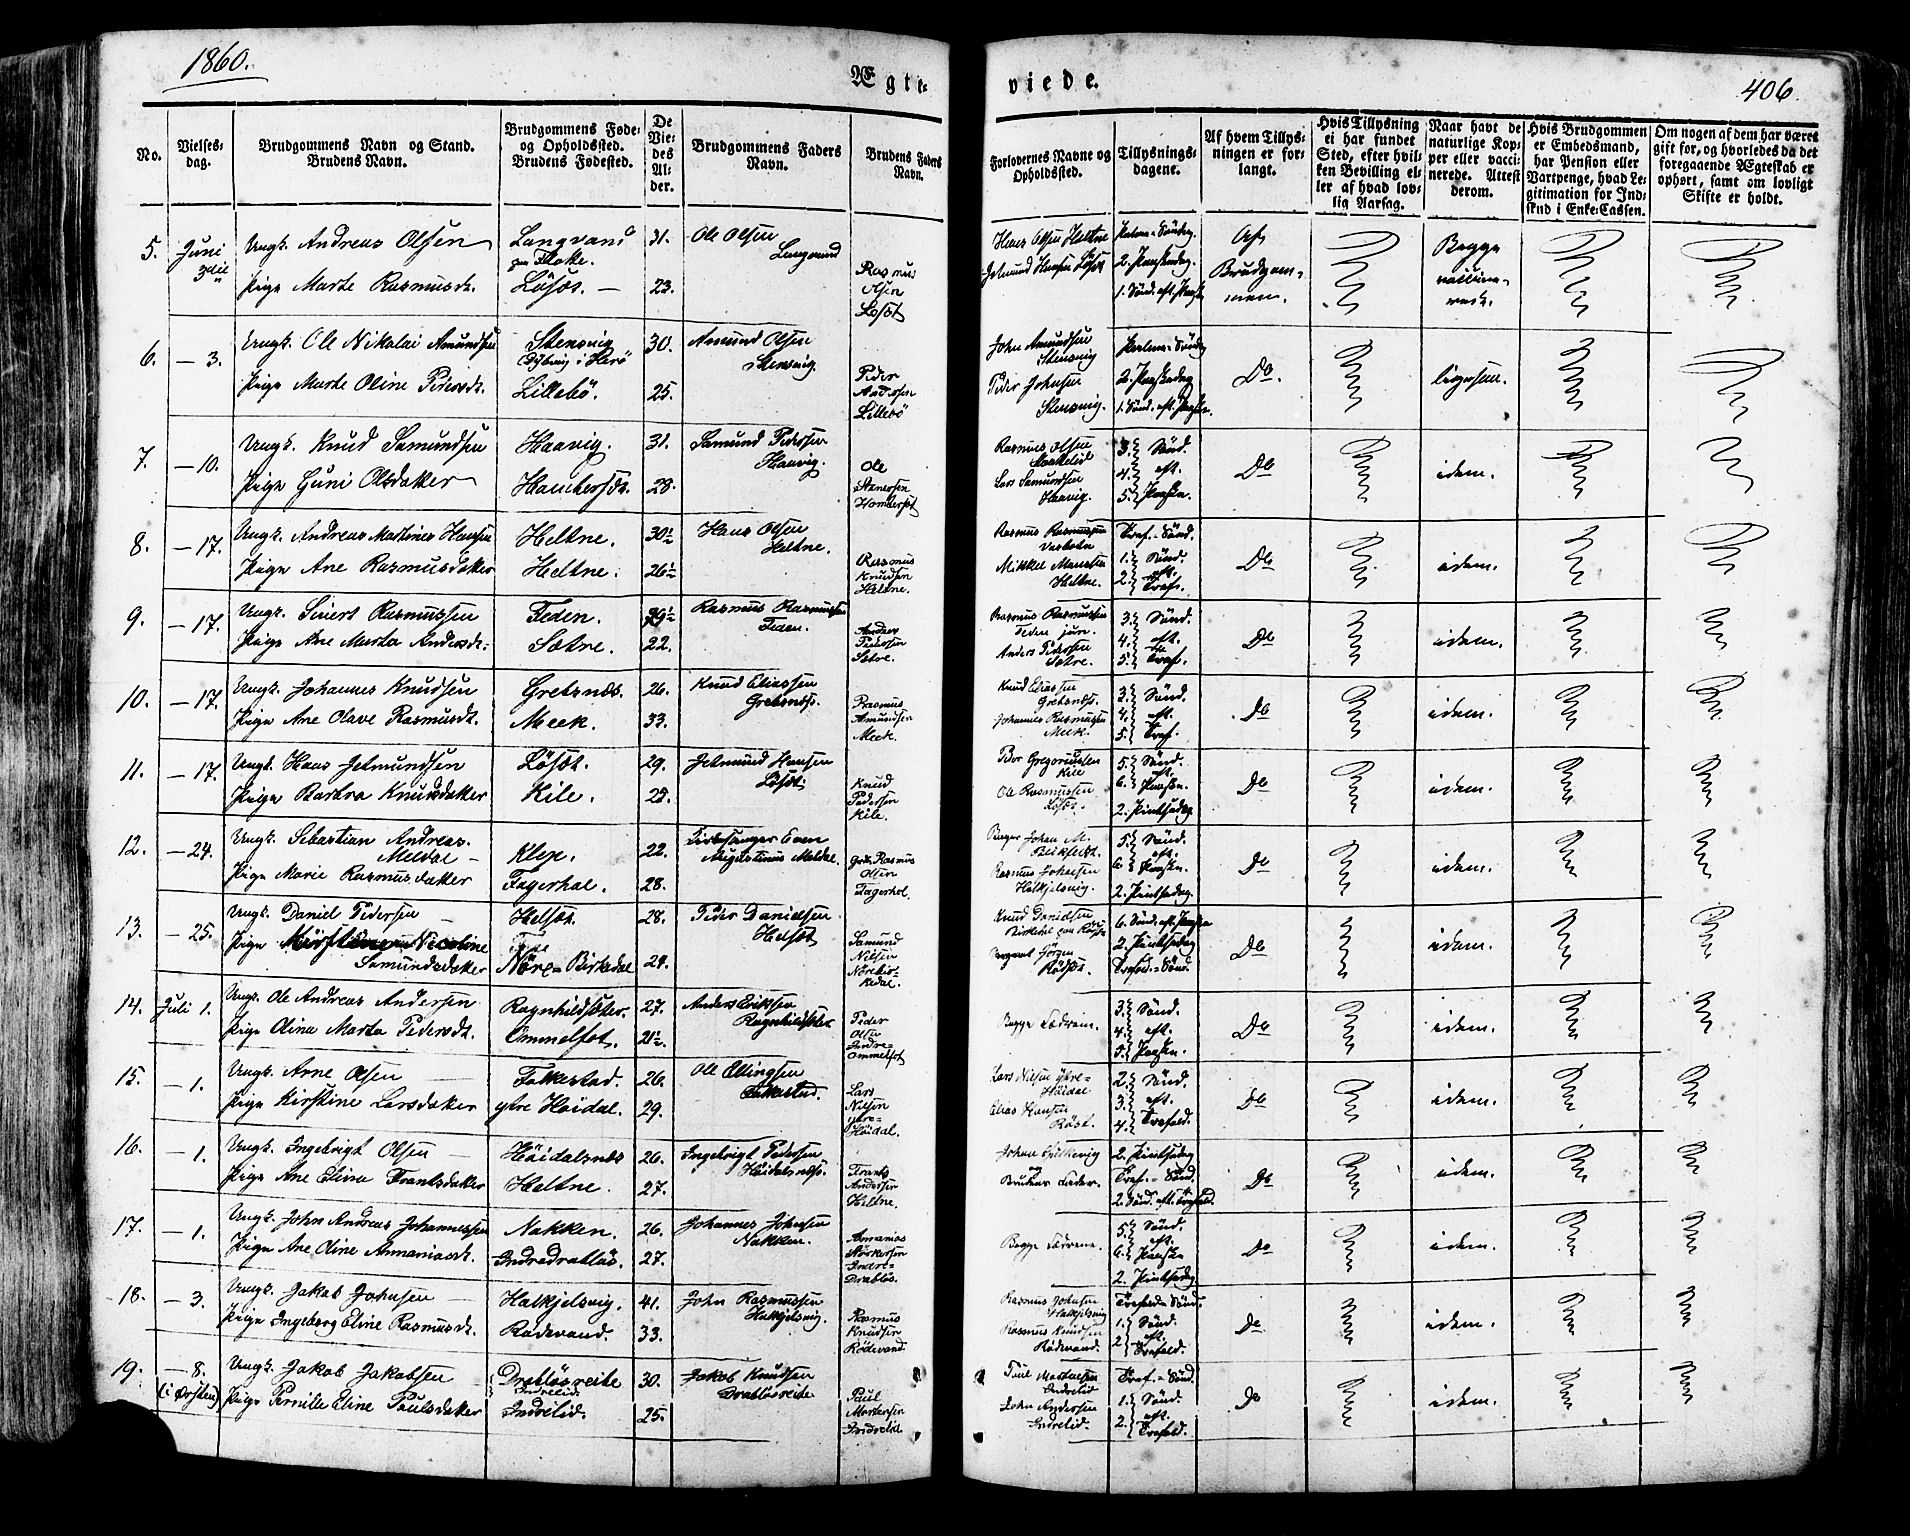 1860.
Ægte-
viede.
406.
No.
Vielses-
dag.
Brudgommens Navn og Stand.
Brudens Navn.
Brudgommens Føde-
og Opholdssted.
Brudens Fødested.
De
Vie-
des
Al-
der.
Brudgommens Faders
Navn.
Brudens Faders
Navn.
Forlovernes Navne og
Opholdssted.
Tillysnings-
dagene.
Af hvem Tillys-
ningen er for-
langt.
Hvis Tillysning
ei har fundet
Sted, efter hvil-
ken Bevilling el-
ler af hvad lov-
lig Aarsag.
Naar havt de
naturlige Kop-
per eller vacci-
nerede. Attest
derom.
Hvis Brudgommen
er Embedsmand,
har Pension eller
Vartpenge, hvad Le-
gitimation for Ind-
skud i Enke-Cassen.
Om nogen af dem har været
gift før, og hvorledes da det
foregaaende Ægteskab er
ophørt, samt om lovligt
Skifte er holdt.
5. Juni 3die
Ungk. Andreas Olsen
Pige Marte Rasmusdt.
Langvand
Løsæt.
31.
23.
Ole Olsen
Langvand
Rasmus
Olsen
Løsæt
Hans Olsen Heltne
Jetmund Hansen Løsæt
Palme-Søndag
2. Paaskedag
1. Sønd. eft. Paaske
Af
Brudgom-
men.
Begge
vaccine-
rede.
6. — 3.
Ungk. Ole Nikolai Amundsen
Pige Marte Oline Pedersdt.
Stensvig
Dybvig i Herø
Lillebö.
30.
25.
Amund Olsen
Stensvig.
Peder
Andersen
Lillebö
John Amundsen
Stensvig
Peder Johnsen
Stensvig.
Palme-Søndag
2. Paaskedag
1. Sønd. eft. Paasken.
Do.
ligesaa.
7. — 10.
Ungk. Knud Samundsen
Pige Guni Olsdatter
Haavig.
Hambersæt.
31.
28.
Samund Pedersen
Haavig.
Ole
Hambersæt
Rasmus Olsen
Lars Samundsen
Haavig.
3. Sønd.
4. eft.
5. Paasken.
Do
idem.
8. — 17.
Ungk. Andreas Martinus Hansen
Pige Ane Rasmusdatter
Heltne.
Heltne.
30½
26½
Hans Olsen
Heltne.
Rasmus
Knudsen
Heltne.
Rasmus Rasmussen
Mikkel
Heltne.
Tref.-Sønd.
1. Sønd.
2. eft.
Tref.
Do
idem.
9. — 17.
Ungk. Sivert Rasmussen
Pige Ane Marta Andersdt.
Feden.
Sætre.
29½
22.
Rasmus Rasmussen
Feden.
Anders
Pedersen
Sætre.
Rasmus Rasmussen
Feden jun.
Anders Pedersen
Sætre.
3. Sønd.
4. eft.
5. Tref.
Do
idem.
10. — 17.
Ungk. Johannes Knudsen
Pige Ane Olave Rasmusdt.
Gretsnæs.
Meek.
26.
33.
Knud Eliassen
Gretsnæs.
Rasmus
Amundsen
Meek.
Knud Eliassen
Gretsnæs.
Johannes Rasmussen
Meek.
3. Sønd.
4. eft.
5. Tref.
Do
idem.
11. — 17.
Ungk. Hans Jetmundsen
Pige Barbra Knudsdatter
Løsæt.
Kile.
29.
25.
Jetmund Hansen
Løsæt.
Knud
Pedersen
Kile.
Bor Gregoriussen
Kile
Ole Rasmussen
Løsæt.
5. Sønd.
6. eft. Paasken.
2. Pintsedag
Do
idem.
12. — 24.
Ungk. Sebastian Andreas
Meldal
Pige Marie Rasmusdatter
Klep.
Fagerhol.
22.
28.
Kirkesanger Even
Augustinus Meldal.
Rasmus
Olsen
Fagerhol.
Johan M.
Rasmus Johnsen
Halkjelsvig.
5. Sønd.
6. eft. Paasken.
2. Pintsedag.
Do
idem.
13. — 25.
Ungk. Daniel Pedersen
Pige Nicoline
Samundsdatter
Helsæt.
Nøre-Birkedal
28.
24.
Peder Danielsen
Helsæt
Samund
Nilsen
Nørebir-
kedal.
Knud Danielsen
6. Sønd. eft. Paasken
2. Pintsedag
Trefold.-Sønd.
Do
idem.
14. Juli 1.
Ungk. Ole Andreas Andersen
Pige Oline Marta Pedersdt.
Ragnhildsæter.
Ommelsæt.
27.
21½.
Anders Eriksen
Ragnhildsæter.
Peder
Olsen
Indre-
Ommelsæt
Begge Fædrene.
3. Sønd.
4. eft.
5. Paasken.
Do
idem.
15. — 1.
Ungk. Arne Olsen
Pige Kirstine Larsdatter
Folkestad.
ytre Høidal.
26.
29.
Ole Ellingsen
Folkestad.
Lars
Nilsen
ytre-
Høidal.
Lars Nilsen Ytre-
Høidal
Elias Hansen
Røst.
2. Sønd.
3. eft.
4. Trefold.
Do
idem.
16. — 1.
Ungk. Ingebrigt Olsen
Pige Ane Elina Frantsdatter
Høidalsnæs
Heltne.
26.
27.
Ingebrigt Pedersen
Høidalsnæs.
Frants
Andersen
Heltne.
Brudens Fader.
2. Pintsedag
Tref.-Sønd.
2. Sønd. eft. Trefold.
Do
idem.
17. — 1.
Ungk. John Andreas Johannessen
Pige Ane Oline Annaniasdt.
Nakken.
Indredrabløs.
26.
27.
Johannes Johnsen
Nakken.
Annanias
Indre-
Drabløs.
Begge Fædrene.
5. Sønd.
6. eft. Paasken
2. Pintsedag
Do
idem.
18. — 3.
Ungk. Jakob Johnsen
Pige Ingeborg Eline Rasmusdt.
Halkjelsvig.
Rødevand.
41.
33.
John Rasmussen
Halkjelsvig.
Rasmus
Knudsen
Rødevand.
Rasmus Johnsen
Halkjelsvig
Rasmus Knudsen
Rødevand.
Trefold-Sønd.
1. Sønd.
2. eft.
Trefold.
Do
idem.
19. — 8.
(i Ørsten)
Ungk. Jakob Jakobsen
Pige Pernille Eline Paulsdatter
Drabløsreite
Indrelid.
Indrelid.
30.
25.
Jakob Knudsen
Drabløsreite
Paul
Martensen
Indrelid
Paul Martensen
Indrelid
John Andersen
Indrelid.
Tref.-Sønd.
1. Sønd.
2. eft.
Trefold.
Do
idem.